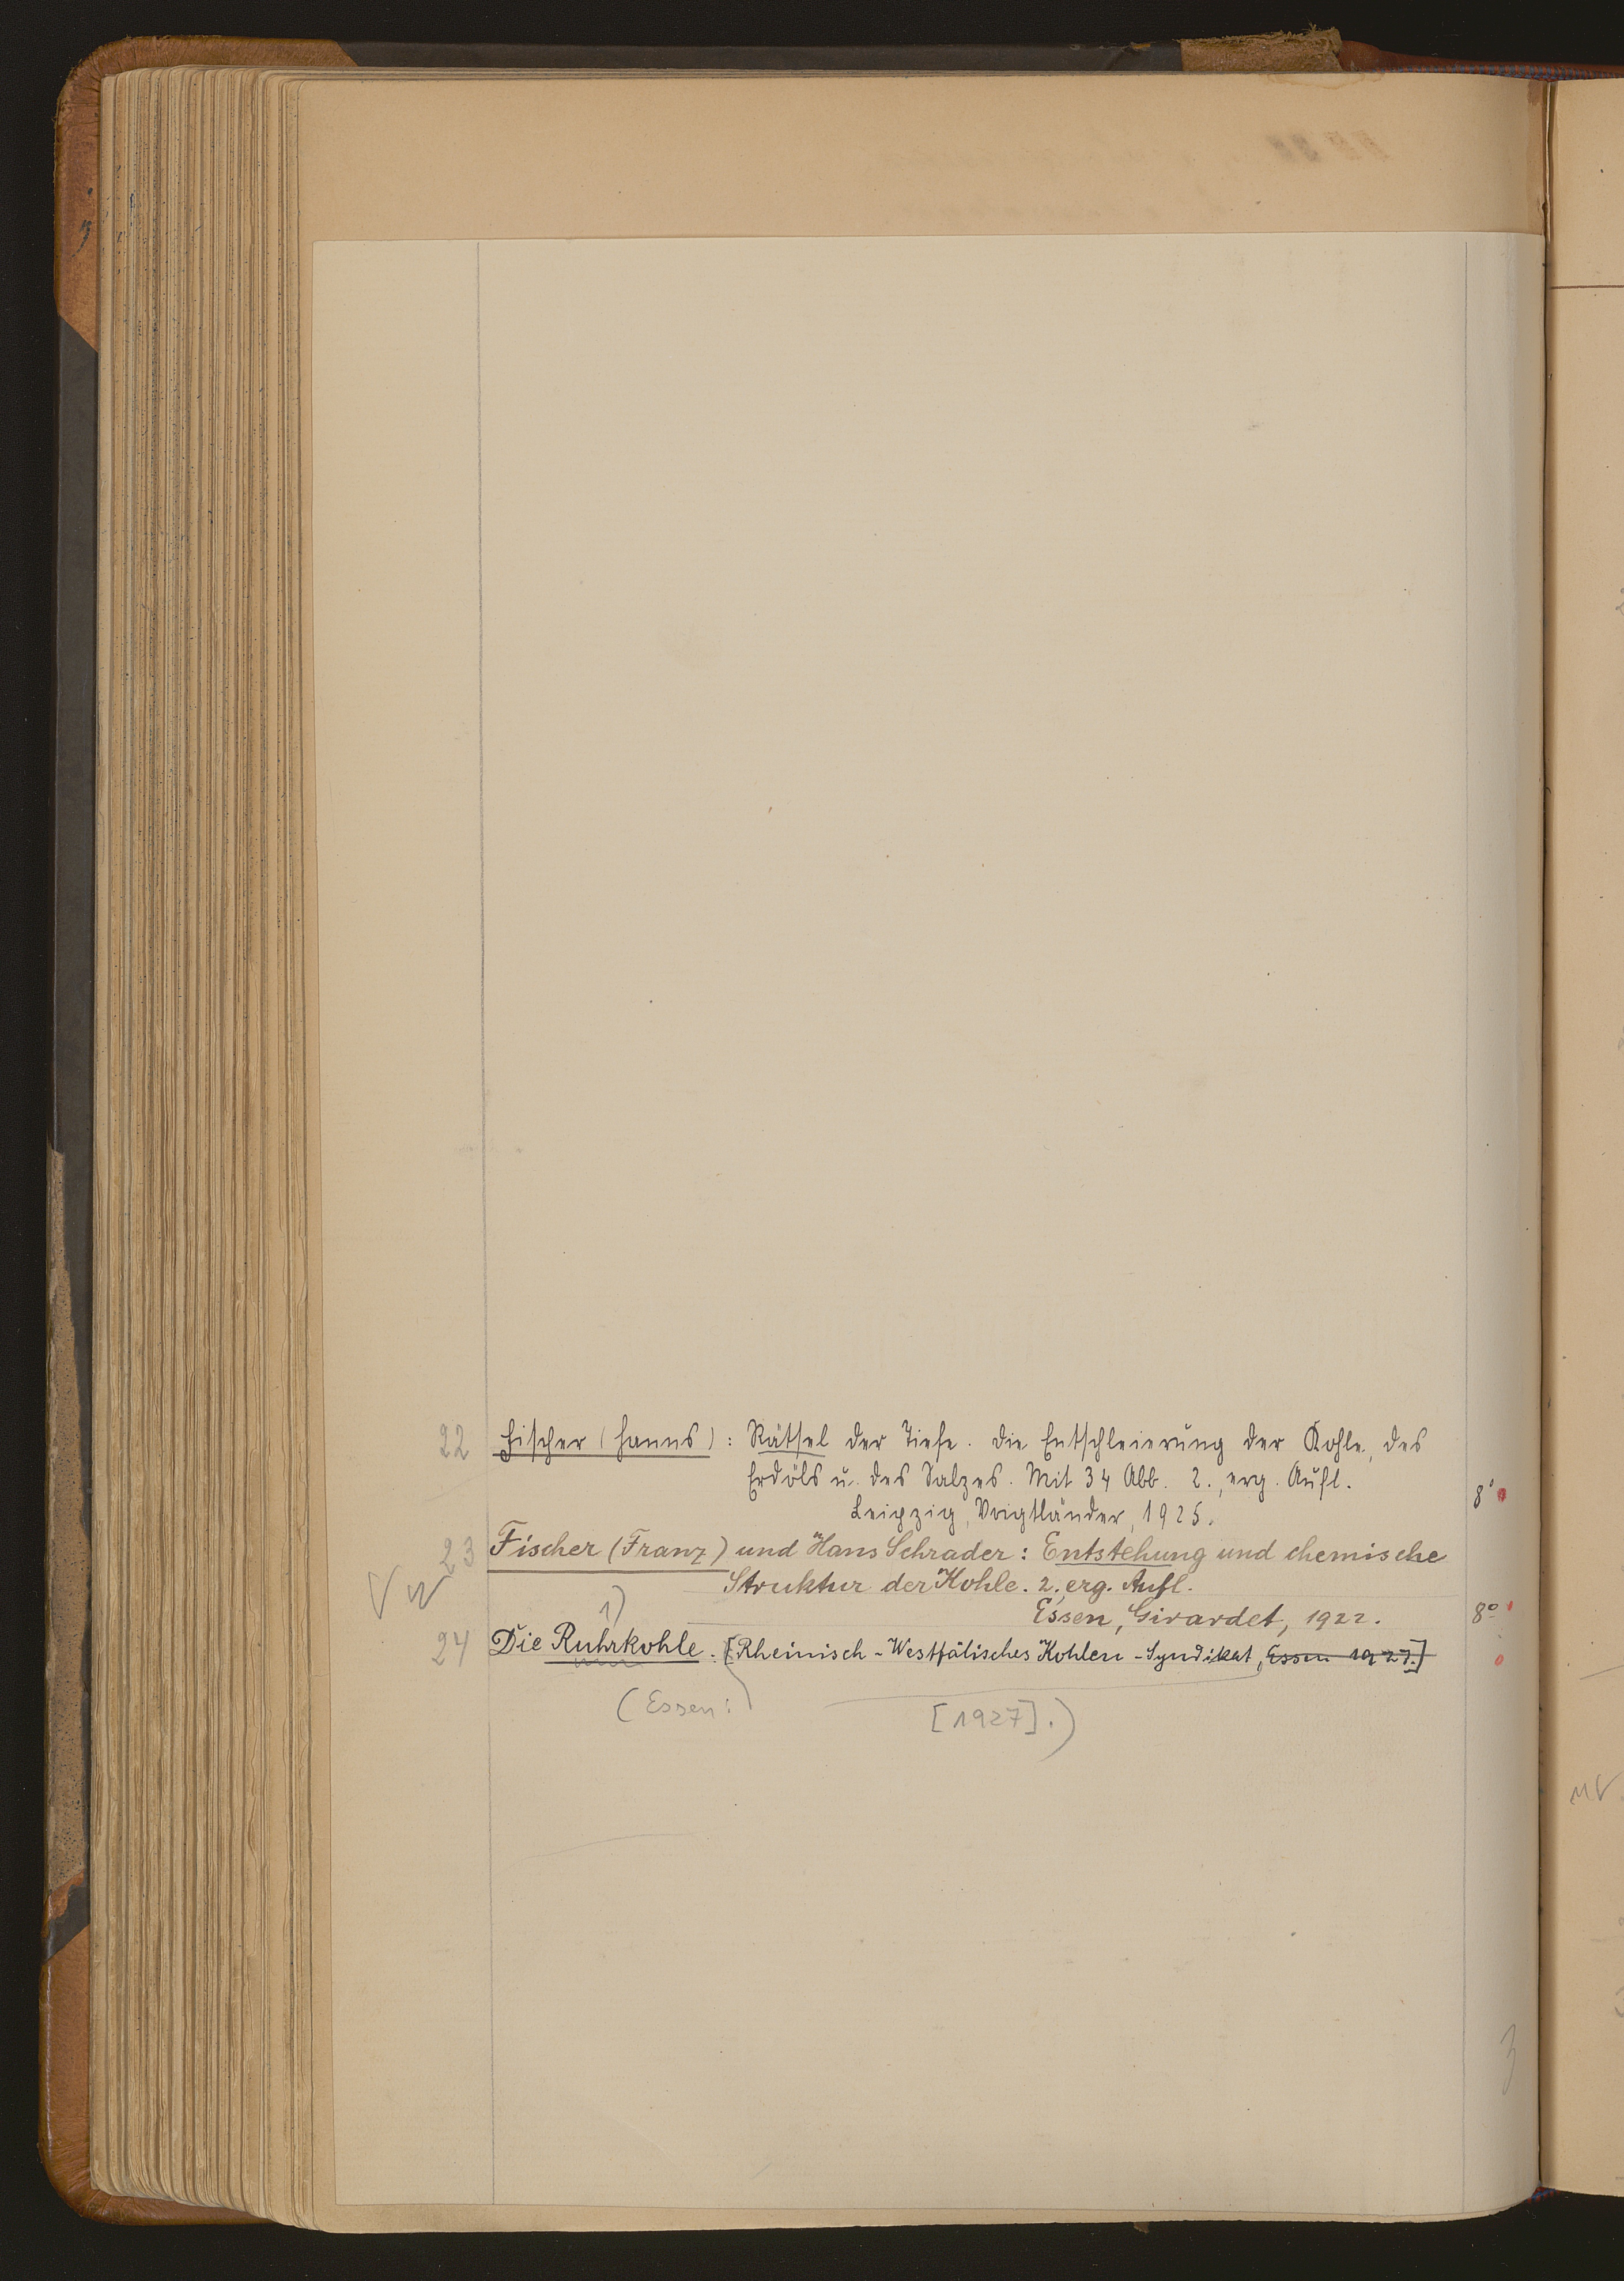 22 Fischer (Hanns): Rätsel der Tiefe. Die Entschleierung der Kohle, des
Erdöls u. des Salzes. Mit 34 Abb. 2., erg. Aufl.
Leipzig, Voigtländer, 1925. 8°
23 Fischer (Franz) und Hans Schrader: Entstehung und chemische
Struktur der Kohle. 2., erg. Aufl.
Essen, Girardet, 1922. 8°
1)
24 Die Ruhrkohle. [Rheinisch-Westfälisches Kohlen-Syndikat, Essen 1927.]
(Essen:
[1927].)
3